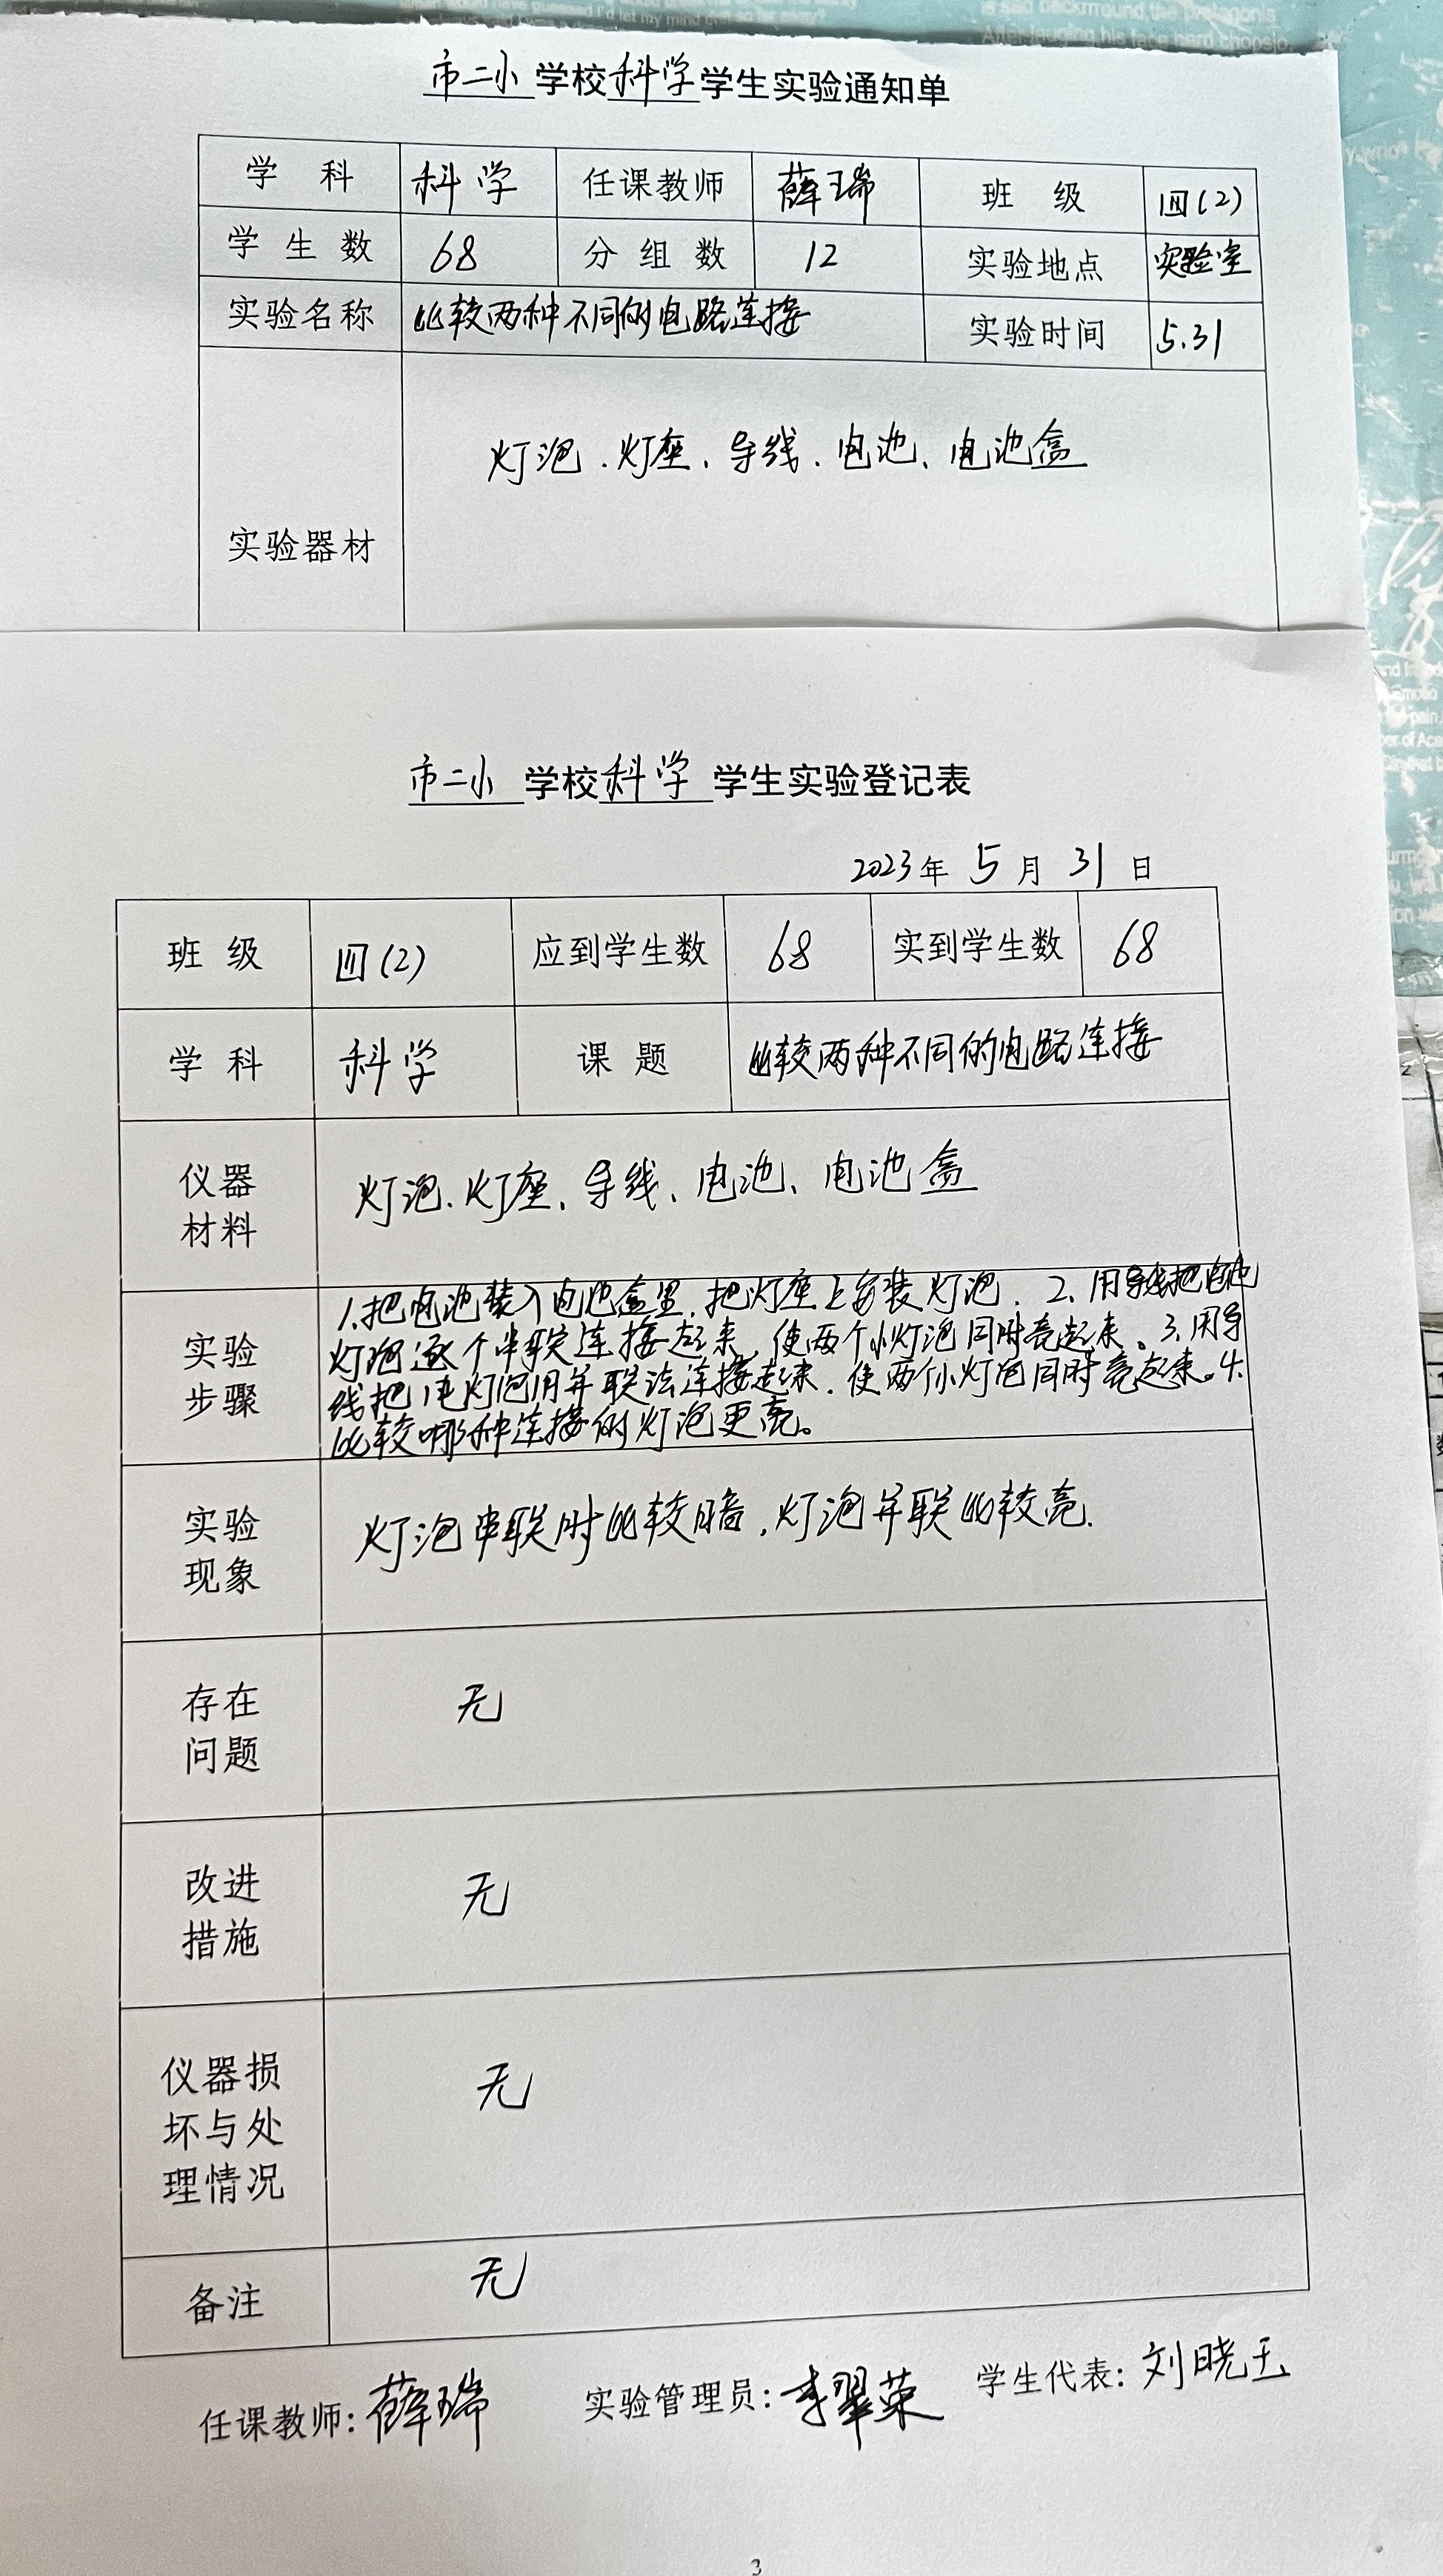 市二小学校科学学生实验通知单
学科 科学 任课教师 薛瑞 班级 四(2)
学生数 68 分组数 12 实验地点 实验室
实验名称 比较两种不同的电路连接 实验时间 5.31
灯泡、灯座、导线、电池、电池盒
实验器材
市二小学校科学学生实验登记表
2023年5月31日
班级 四(2) 应到学生数 68 实到学生数 68
学科 科学 课题 比较两种不同的电路连接
仪器
材料
灯泡、灯座、导线、电池、电池盒
实验
步骤
1.把电池装入电池盒里,把灯座上安装灯泡. 2、用导线把电池
灯泡逐个串联连接起来,使两个小灯泡同时亮起来。3.用导
线把 灯泡用并联法连接起来.使两个小灯泡同时亮起来。4.
比较哪种连接的灯泡更亮。
实验
现象
灯泡串联时比较暗,灯泡并联比较亮.
存在
问题
无
改进
措施
无
仪器损
坏与处
理情况
无
备注
无
任课教师:薛瑞 实验管理员:李翠荣 学生代表:刘晓玉
3